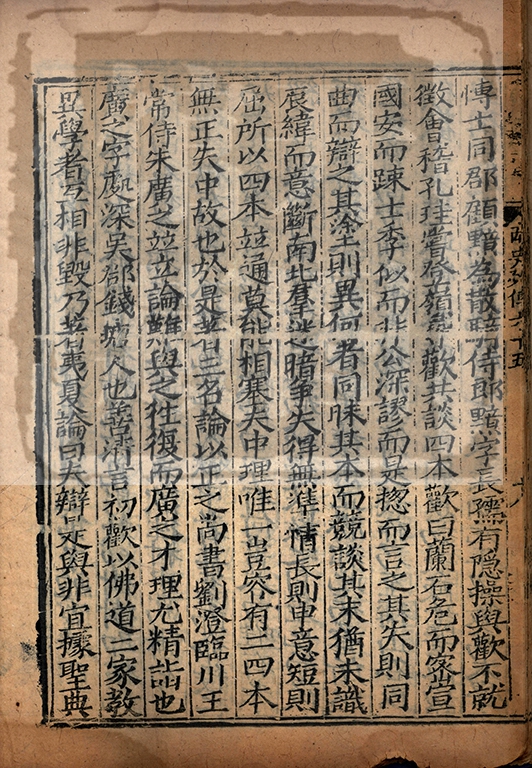 博士同郡顧黯為散騎侍郎黯字長孺有隱操與歡不就
徵會稽孔珪嘗登嶺尋歡共談四本歡曰蘭石危而密宣
國安而踈士季似而非公深謬而是揔而言之其失則同
曲而辯之其塗則異何者同昧其本而競談其末猶未識
辰緯而意斷南北羣迷暗爭失得無準情長則申意短則
屈所以四本並通莫能相塞夫中理唯一豈容有二四本
無正失中故也於是著三名論以正之尚書劉澄臨川王
常侍朱廣之並立論難與之往復而廣之才理尤精詣也
廣之字處深吳郡錢塘人也善清言初歡以佛道二家教
異學者互相非毀乃著夷夏論曰夫辯是與非宜據聖典